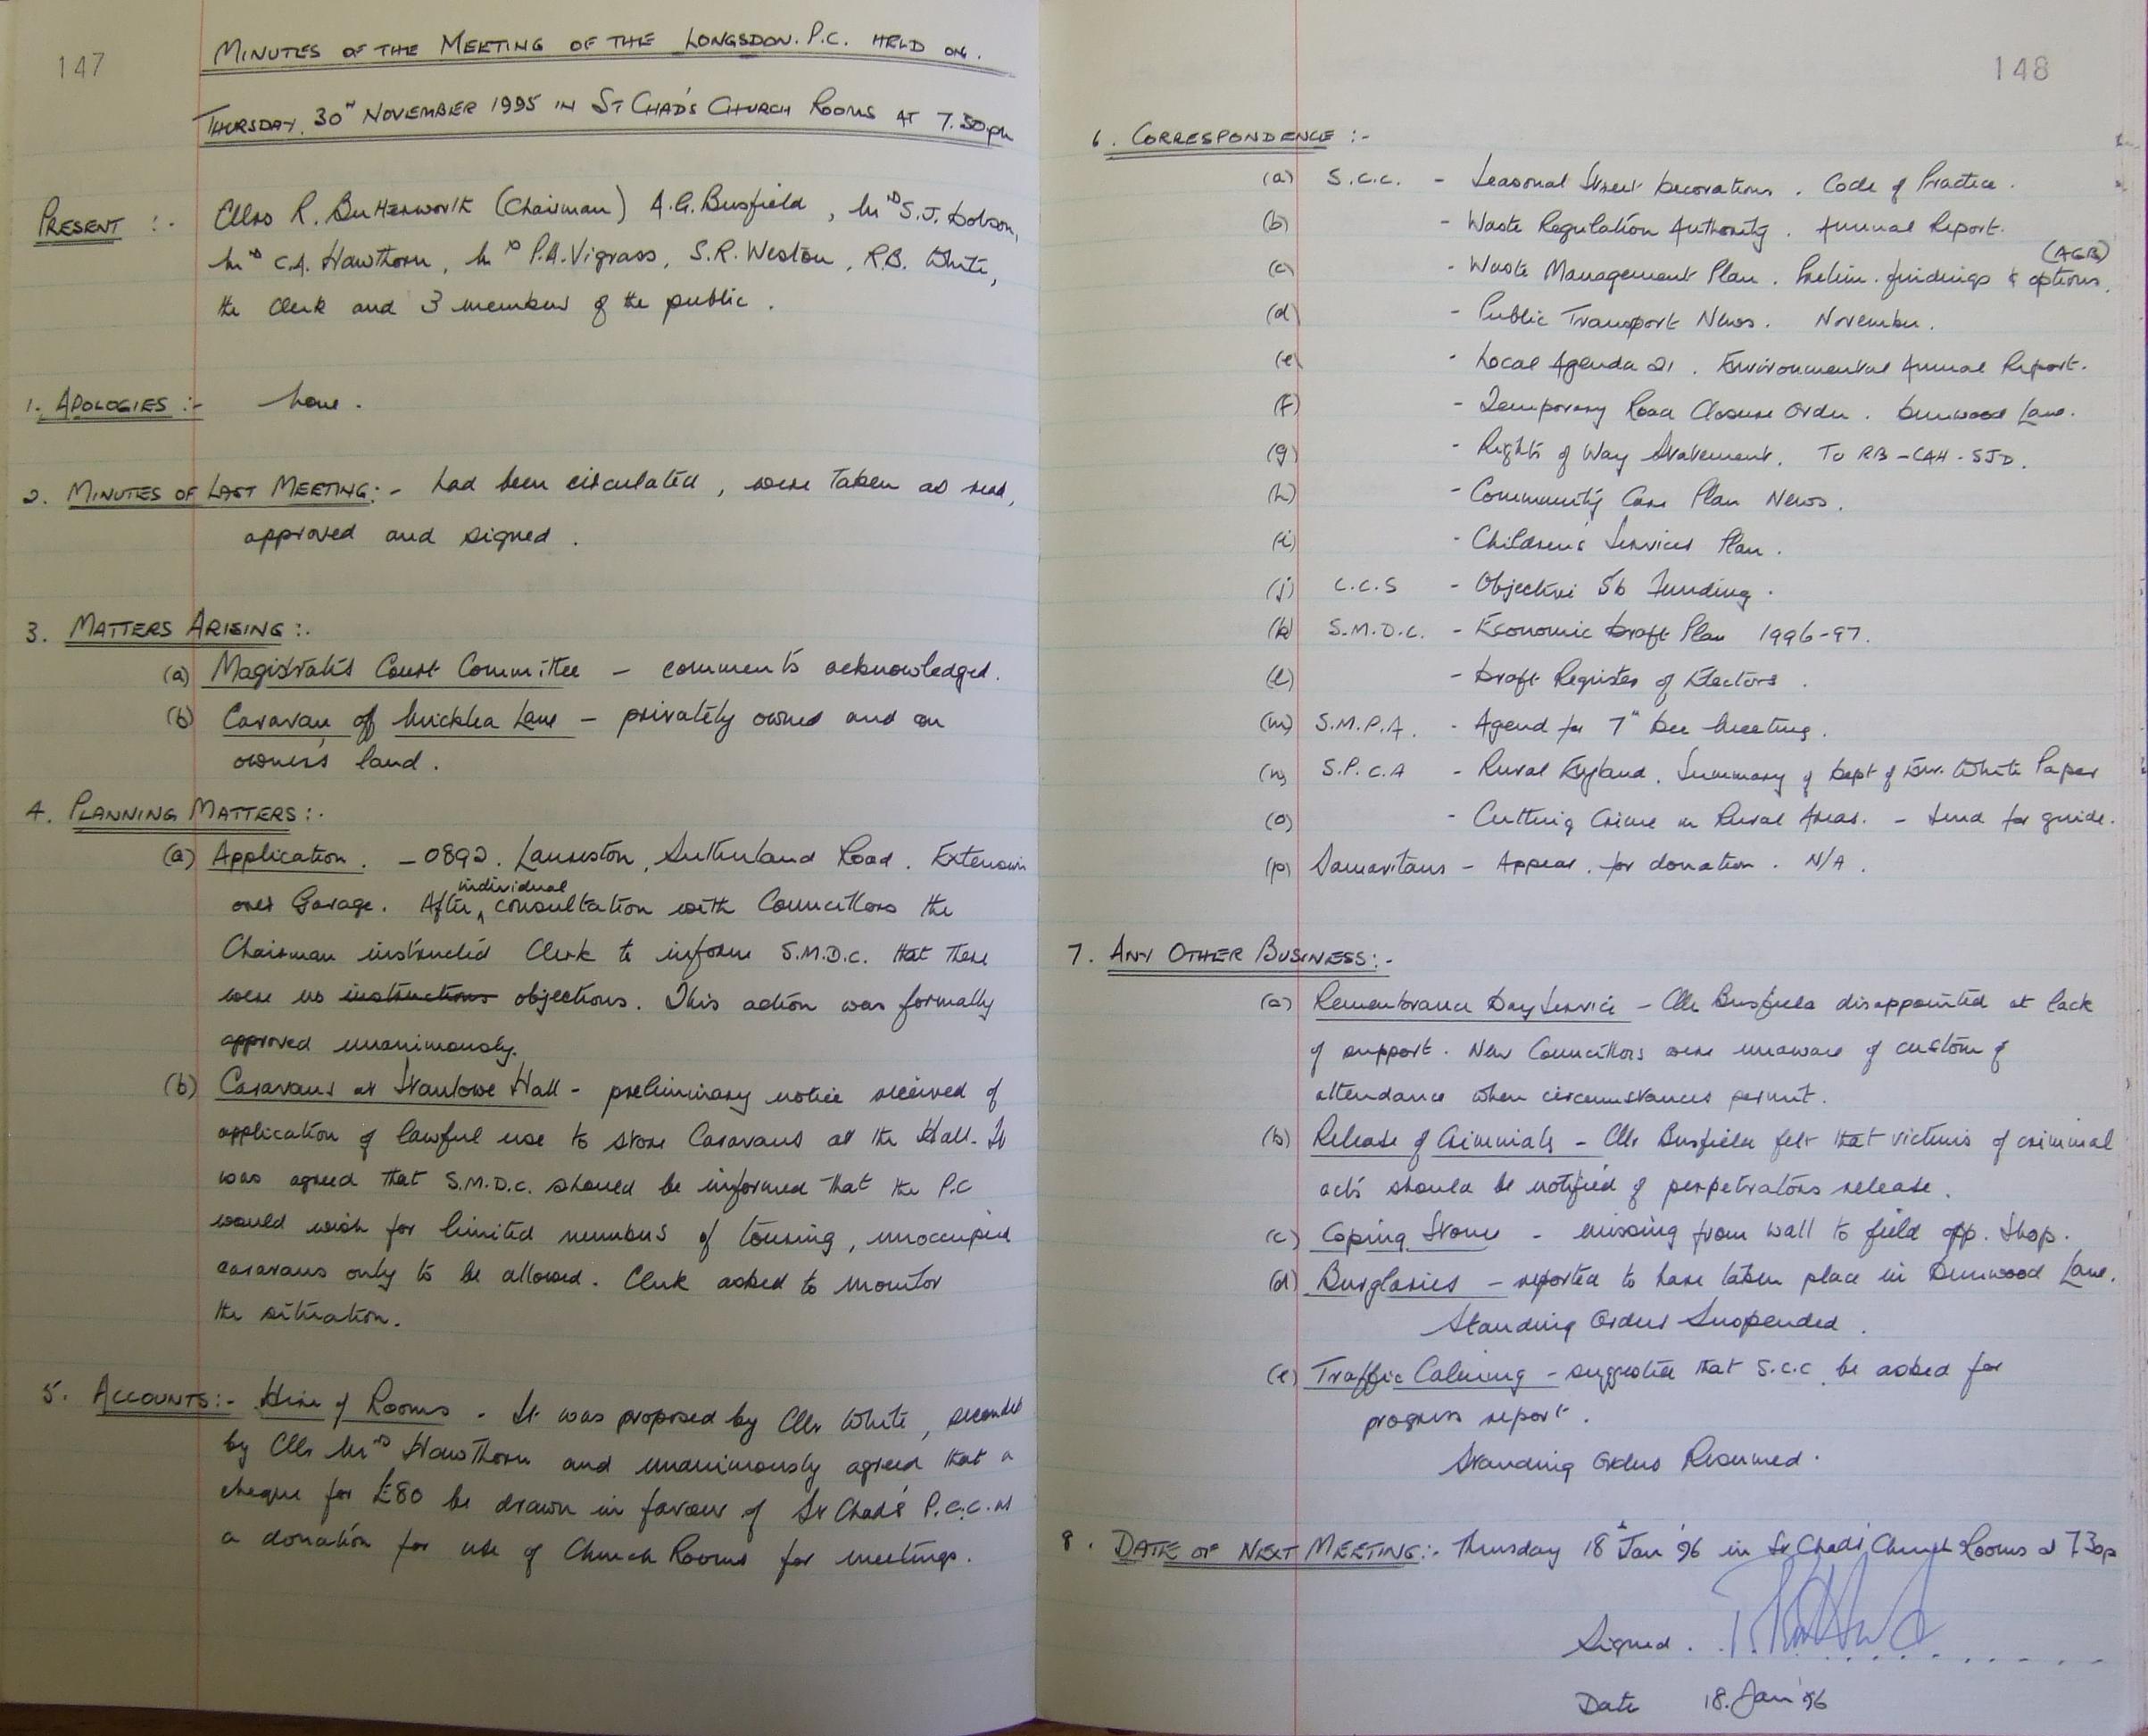 147
MINUTES OF THE MEETING OF THE LONGSDON. P.C. HELD ON.
THURSDAY. 30TH NOVEMBER 1995 IN ST CHAD'S CHURCH ROOMS AT 7.30pm
PRESENT :- Cllrs R. Butterworth (Chairman) A.G. Busfield, Mrs S.J. Dobson,
Mrs C.A. Hawthorn, Mrs P.A. Vigrass, S.R. Weston, R.B. White,
the Clerk and 3 members of the public.
1. APOLOGIES :- None.
2. MINUTES OF LAST MEETING:- had been circulated, were taken as read,
approved and signed.
3. MATTERS ARISING:-
(a) Magistrates Court Committee - comments acknowledged.
(b) Caravan off Micklea Lane - privately owned and on
owner's land.
4. PLANNING MATTERS:-
(a) Application. - 0892. Sutherland Road. Extension
over Garage. After individual consultation with Councillors the
Chairman instructed Clerk to inform S.M.D.C. that there
were no instructions objections. This action was formally
approved unanimously.
(b) Caravans at Stanlowe Hall - preliminary notice received of
application of lawful use to store Caravans at the Hall. It
was agreed that S.M.D.C. should be informed that the P.C
would wish for limited numbers of touring, unoccupied
caravans only to be allowed. Clerk asked to monitor
the situation.
5. ACCOUNTS:- Hire of Rooms - It was proposed by Cllr White, seconded
by Cllr Mrs Hawthorn and unanimously agreed that a
cheque for £80 be drawn in favour of St Chad's P.C.C. as
a donation for use of Church Rooms for meetings.
148
6. CORRESPONDENCE :-
(a) S.C.C. - Seasonal Street Decorations. Code of Practice.
(b) - Waste Regulation Authority. Annual Report.
(AGB)
(c) - Waste Management Plan. Prelim. findings & options.
(d) - Public Transport News. November.
(e) - Local Agenda 21. Environmental Annual Report.
(f) - Temporary Road Closure Order. Dunwood Lane.
(g) - Rights of Way Statement. To RB - CAH - SJD.
(h) - Community Care Plan News.
(i) - Children's Services Plan.
(j) C.C.S - Objective 5b Funding.
(k) S.M.D.C. - Economic Draft Plan 1996-97.
(l) - Draft Register of Electors.
(m) S.M.P.A. - Agend for 7th Dec Meeting.
(n) S.P.C.A - Rural England. Summary of Dept of Env. White Paper
(o) - Cutting Crime in Rural Areas. - Send for guide.
(p) Samaritans - Appear. for donation. N/A.
7. ANY OTHER BUSINESS:-
(a) Remembrance Day Service - Cllr Busfield disappointed at lack
of support. New Councillors were unaware of custom of
attendance when circumstances permit.
(b) Release of Criminals - Cllr Busfield felt that victims of criminal
acts should be notified of perpetrators release.
(c) Coping Stones - missing from wall to field opp. Shop.
(d) Burglaries - reported to have taken place in Dunwood Lane.
Standing Orders Suspended.
(e) Traffic Calming - suggested that S.C.C. be asked for
progress report.
Standing Orders Resumed.
8. DATE OF NEXT MEETING:- Thursday 18th Jan '96 in St Chad's Church Rooms at 7.30p
Signed.
Date 18. Jan '96